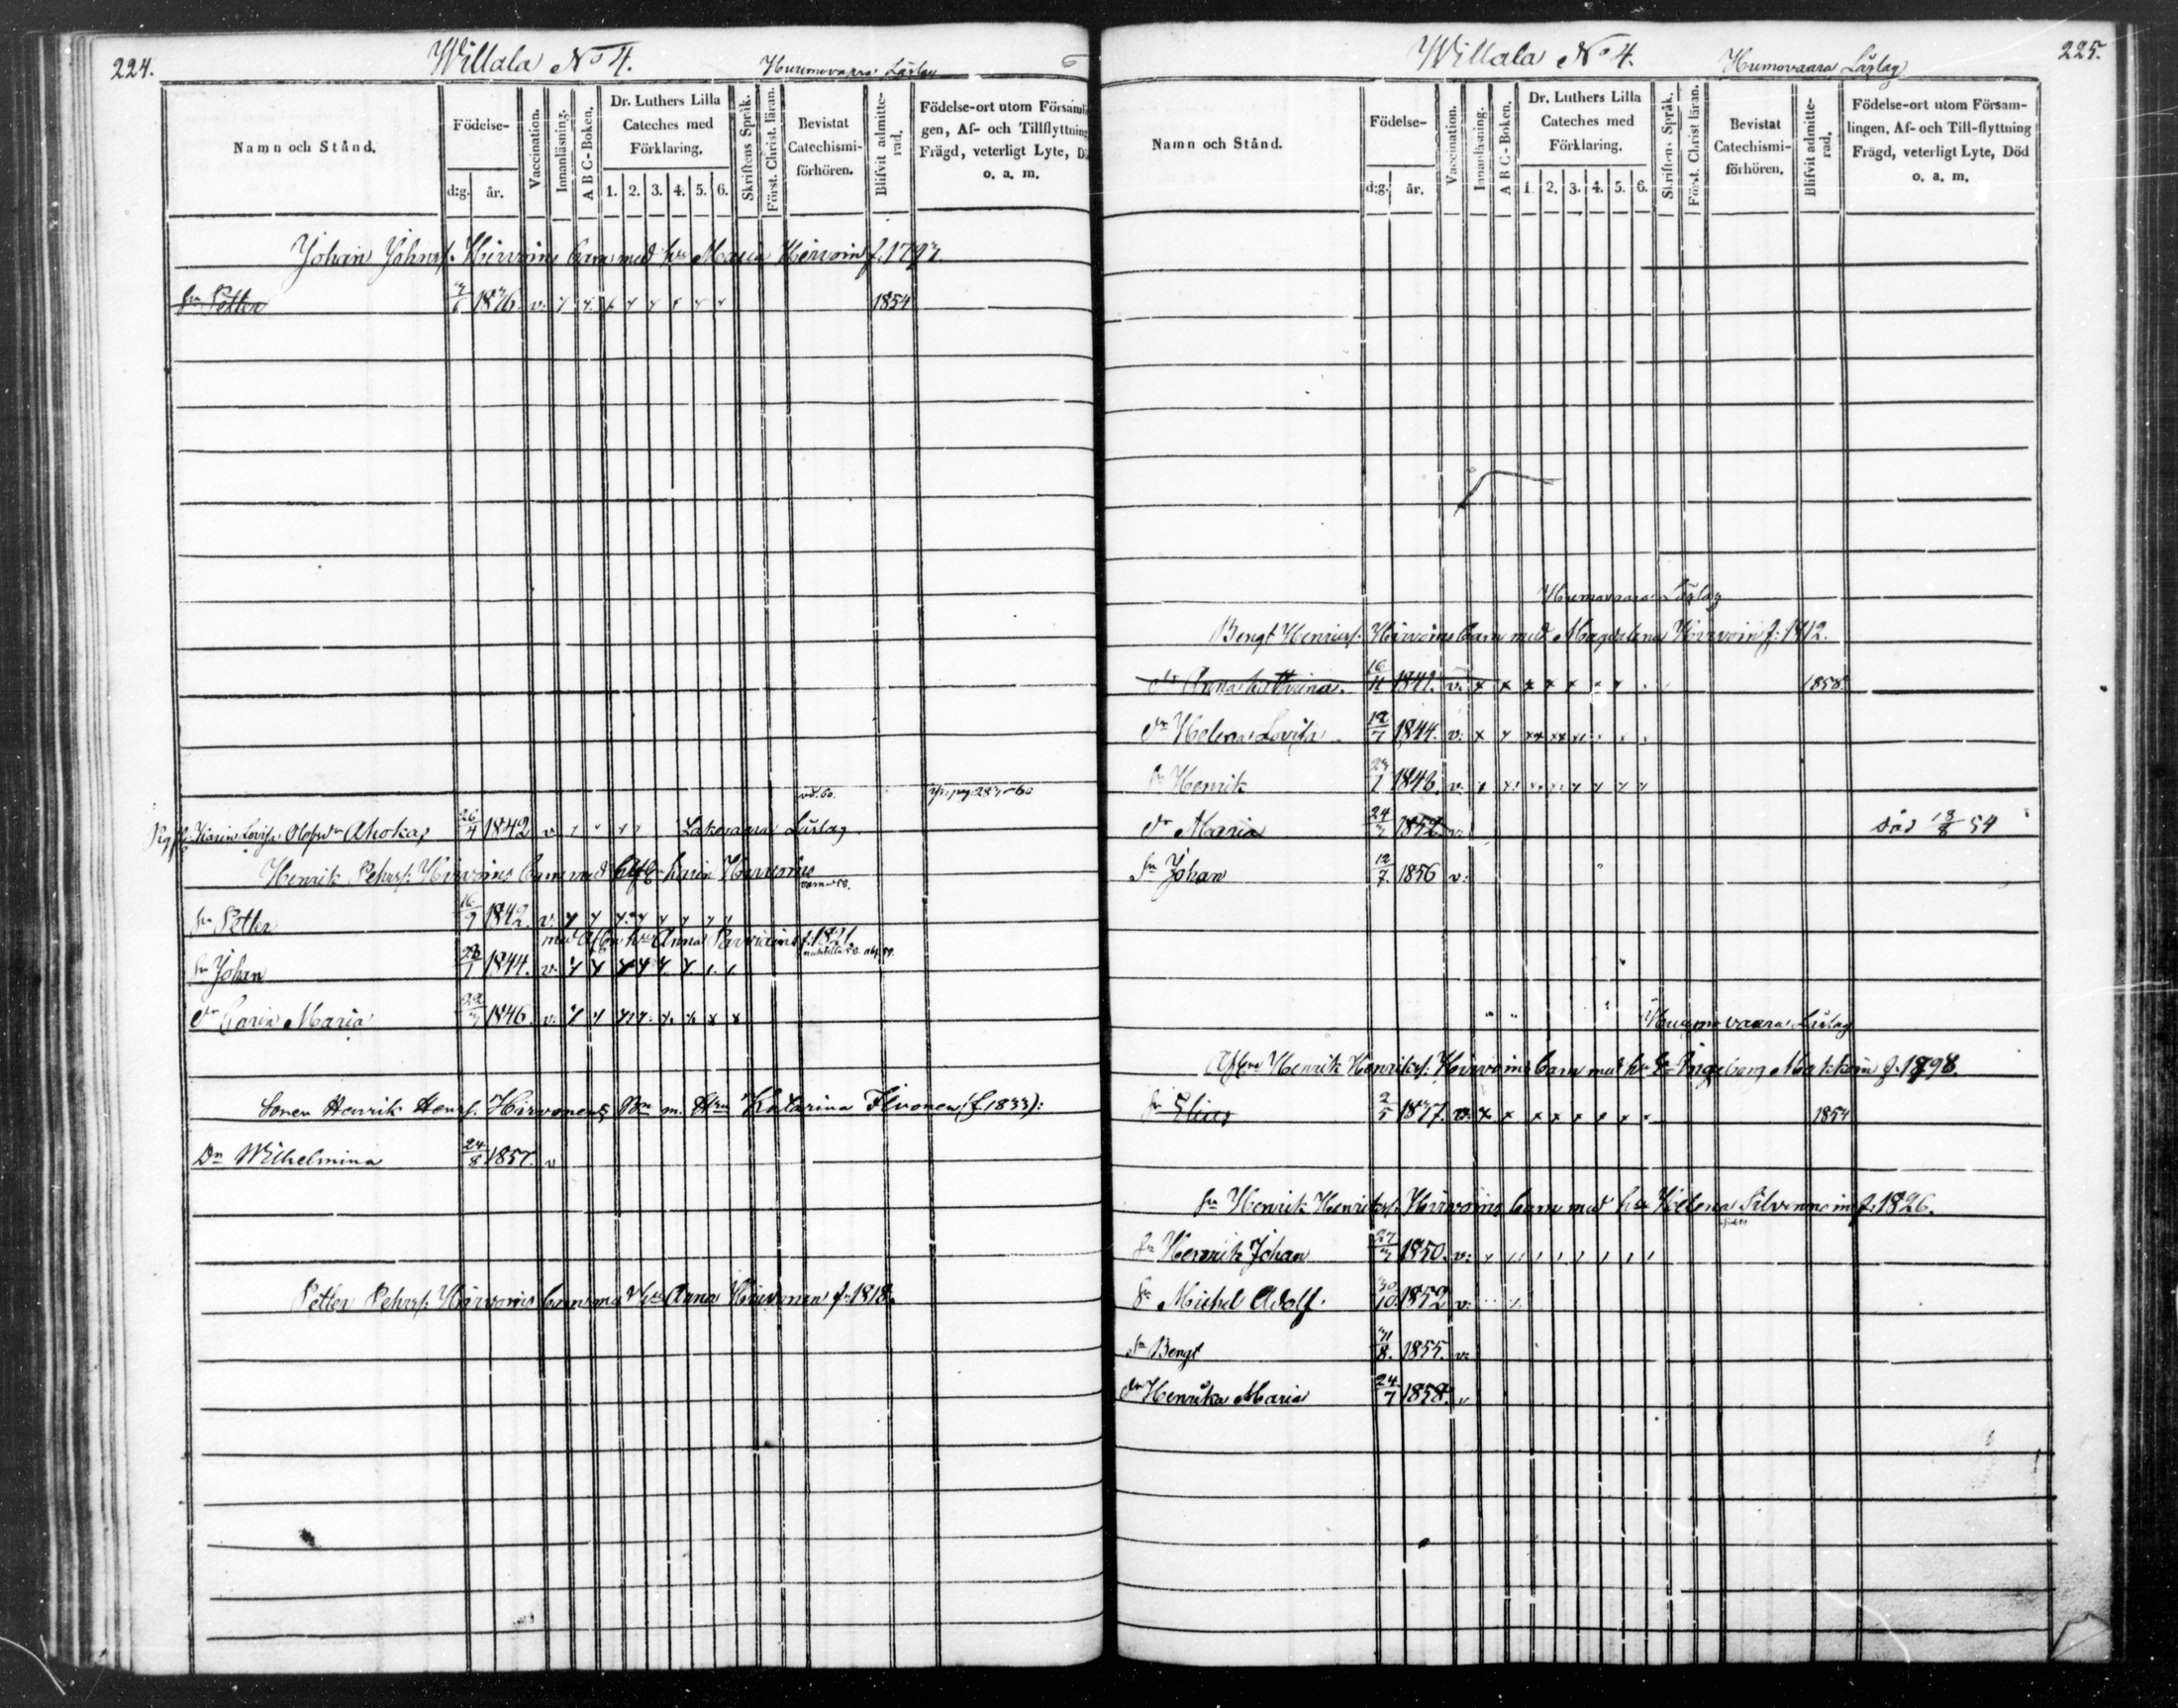 224.
Willala No 4.
Huumovaara Läslag
Namn och Stånd.
Födelse-
d:g. år.
Vaccination.
Innanläsning.
A B C-Boken.
Dr. Luthers Lilla
Cateches med
Förklaring.
1. 2. 3. 4. 5. 6.
Skriftens Språk.
Först. Christ. läran.
Bevistat
Catechismi-
förhören.
Blifvit admitte-
rad.
Födelse-ort utom Församli
gen, Af- och Tillflyttning
Frägd, veterligt Lyte, Dö
o. a. m.
Johan Johnsf. Hirvoins barn med hu Maria Hirvoin f.
Sn Petter 1854
Karin Lovisa Olofsdr Ahokas 26/4 1842 v. Lakovaara Läslag
Henrik Pehrsf. Hirvoins barn med Karin Hirvoins
Sn Petter 16/9 1842. v.
med hu Anna f. 1821
Sn Johan 1844. v.
Dr Carin Maria 1846. v.
Sonen Henrik Henrsf. Hirvonens Bn m. Hru Katarina Ilvonen (f. 1833):
Dn Wilhelmina 24/8 1857. v
Petter Pehrsf. Hirvonis barn med hu Anna Hirvonen f. 1818.
225.
Willala No 4.
Humovaara Läslag
Namn och Stånd.
Födelse-
d:g. år.
Vaccination.
Innanläsning.
A B C-Boken.
Dr. Luthers Lilla
Cateches med
Förklaring.
1. 2. 3. 4. 5. 6.
Skriftens Språk.
Först. Christ läran.
Bevistat
Catechismi-
förhören.
Blifvit admitte-
rad.
Födelse-ort utom Försam-
lingen, Af- och Till-flyttning
Frägd, veterligt Lyte, Död
o. a. m.
Humovaara Läslag
Bengt Henricsf. Hirvoins barn med Magdalena Hirvoin f. 1812.
dr Anna Cathrina. 16/11 v. 1858.
dr Helena Lovisa 18/7 1844. v.
Sn Henrik 1848. v.
dr Maria 1852 v. död 18/8 54
Sn Johan 12/7. 1856 v.
Huumovaara Läslag
Henrik Henriksf. Hirvoins barn med hu Ingeborg Makkoin f. 1798.
Sn Elias 2/5 v. 1854
Sn Henrik Henriksf. Hirvoins barn med hu Helena Silvennoin f. 1826.
Sn Henrik Johan 1850. v.
Sn Michel Adolf. 30/10 1852 v.
Sn Bengt 1855. v.
dr Henrika Maria 24/7 1858. v